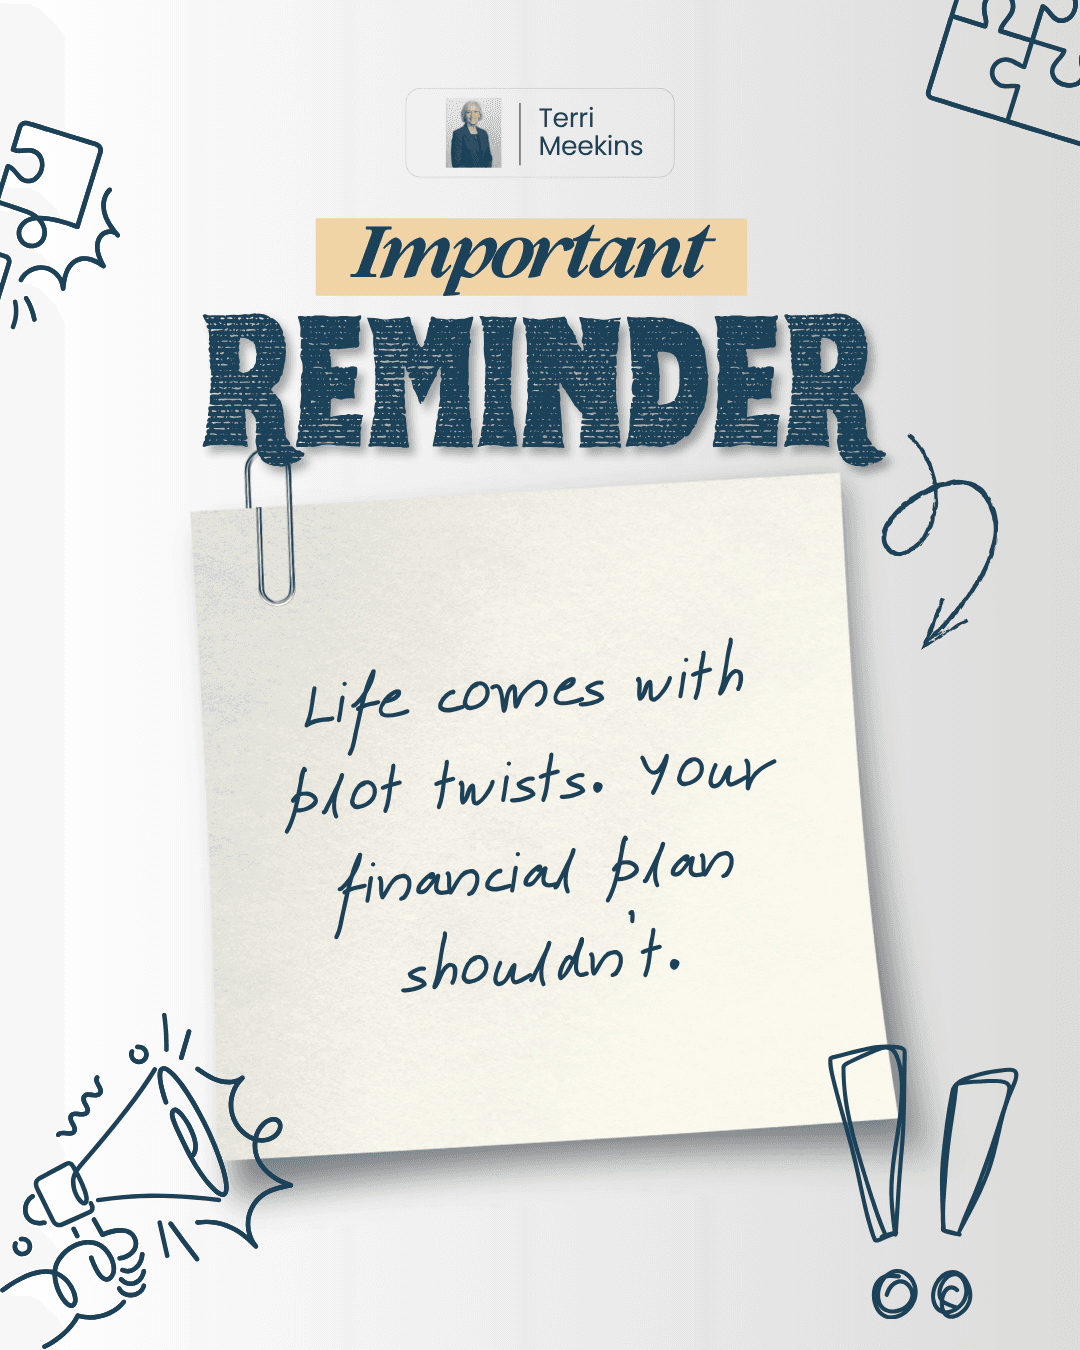 Terri
Meekins
Important
REMINDER
Life comes with
plot twists. Your
financial plan
shouldn't.